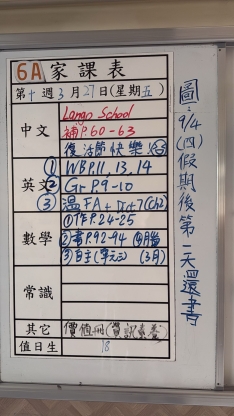 6A 家課表
第十週 3月27日(星期五)
中文
Langn School
補P.60-63
復活節快樂
英文
① WB P.11, 13, 14
② Gr P.9-10
③ 溫FA+
數學
①作P.24-25
②書P.92-94
③自主(單元三) (3月)
常識
其它
價值冊(資訊素養)
值日生
18
圖：9/4(四)假期後第一天還書